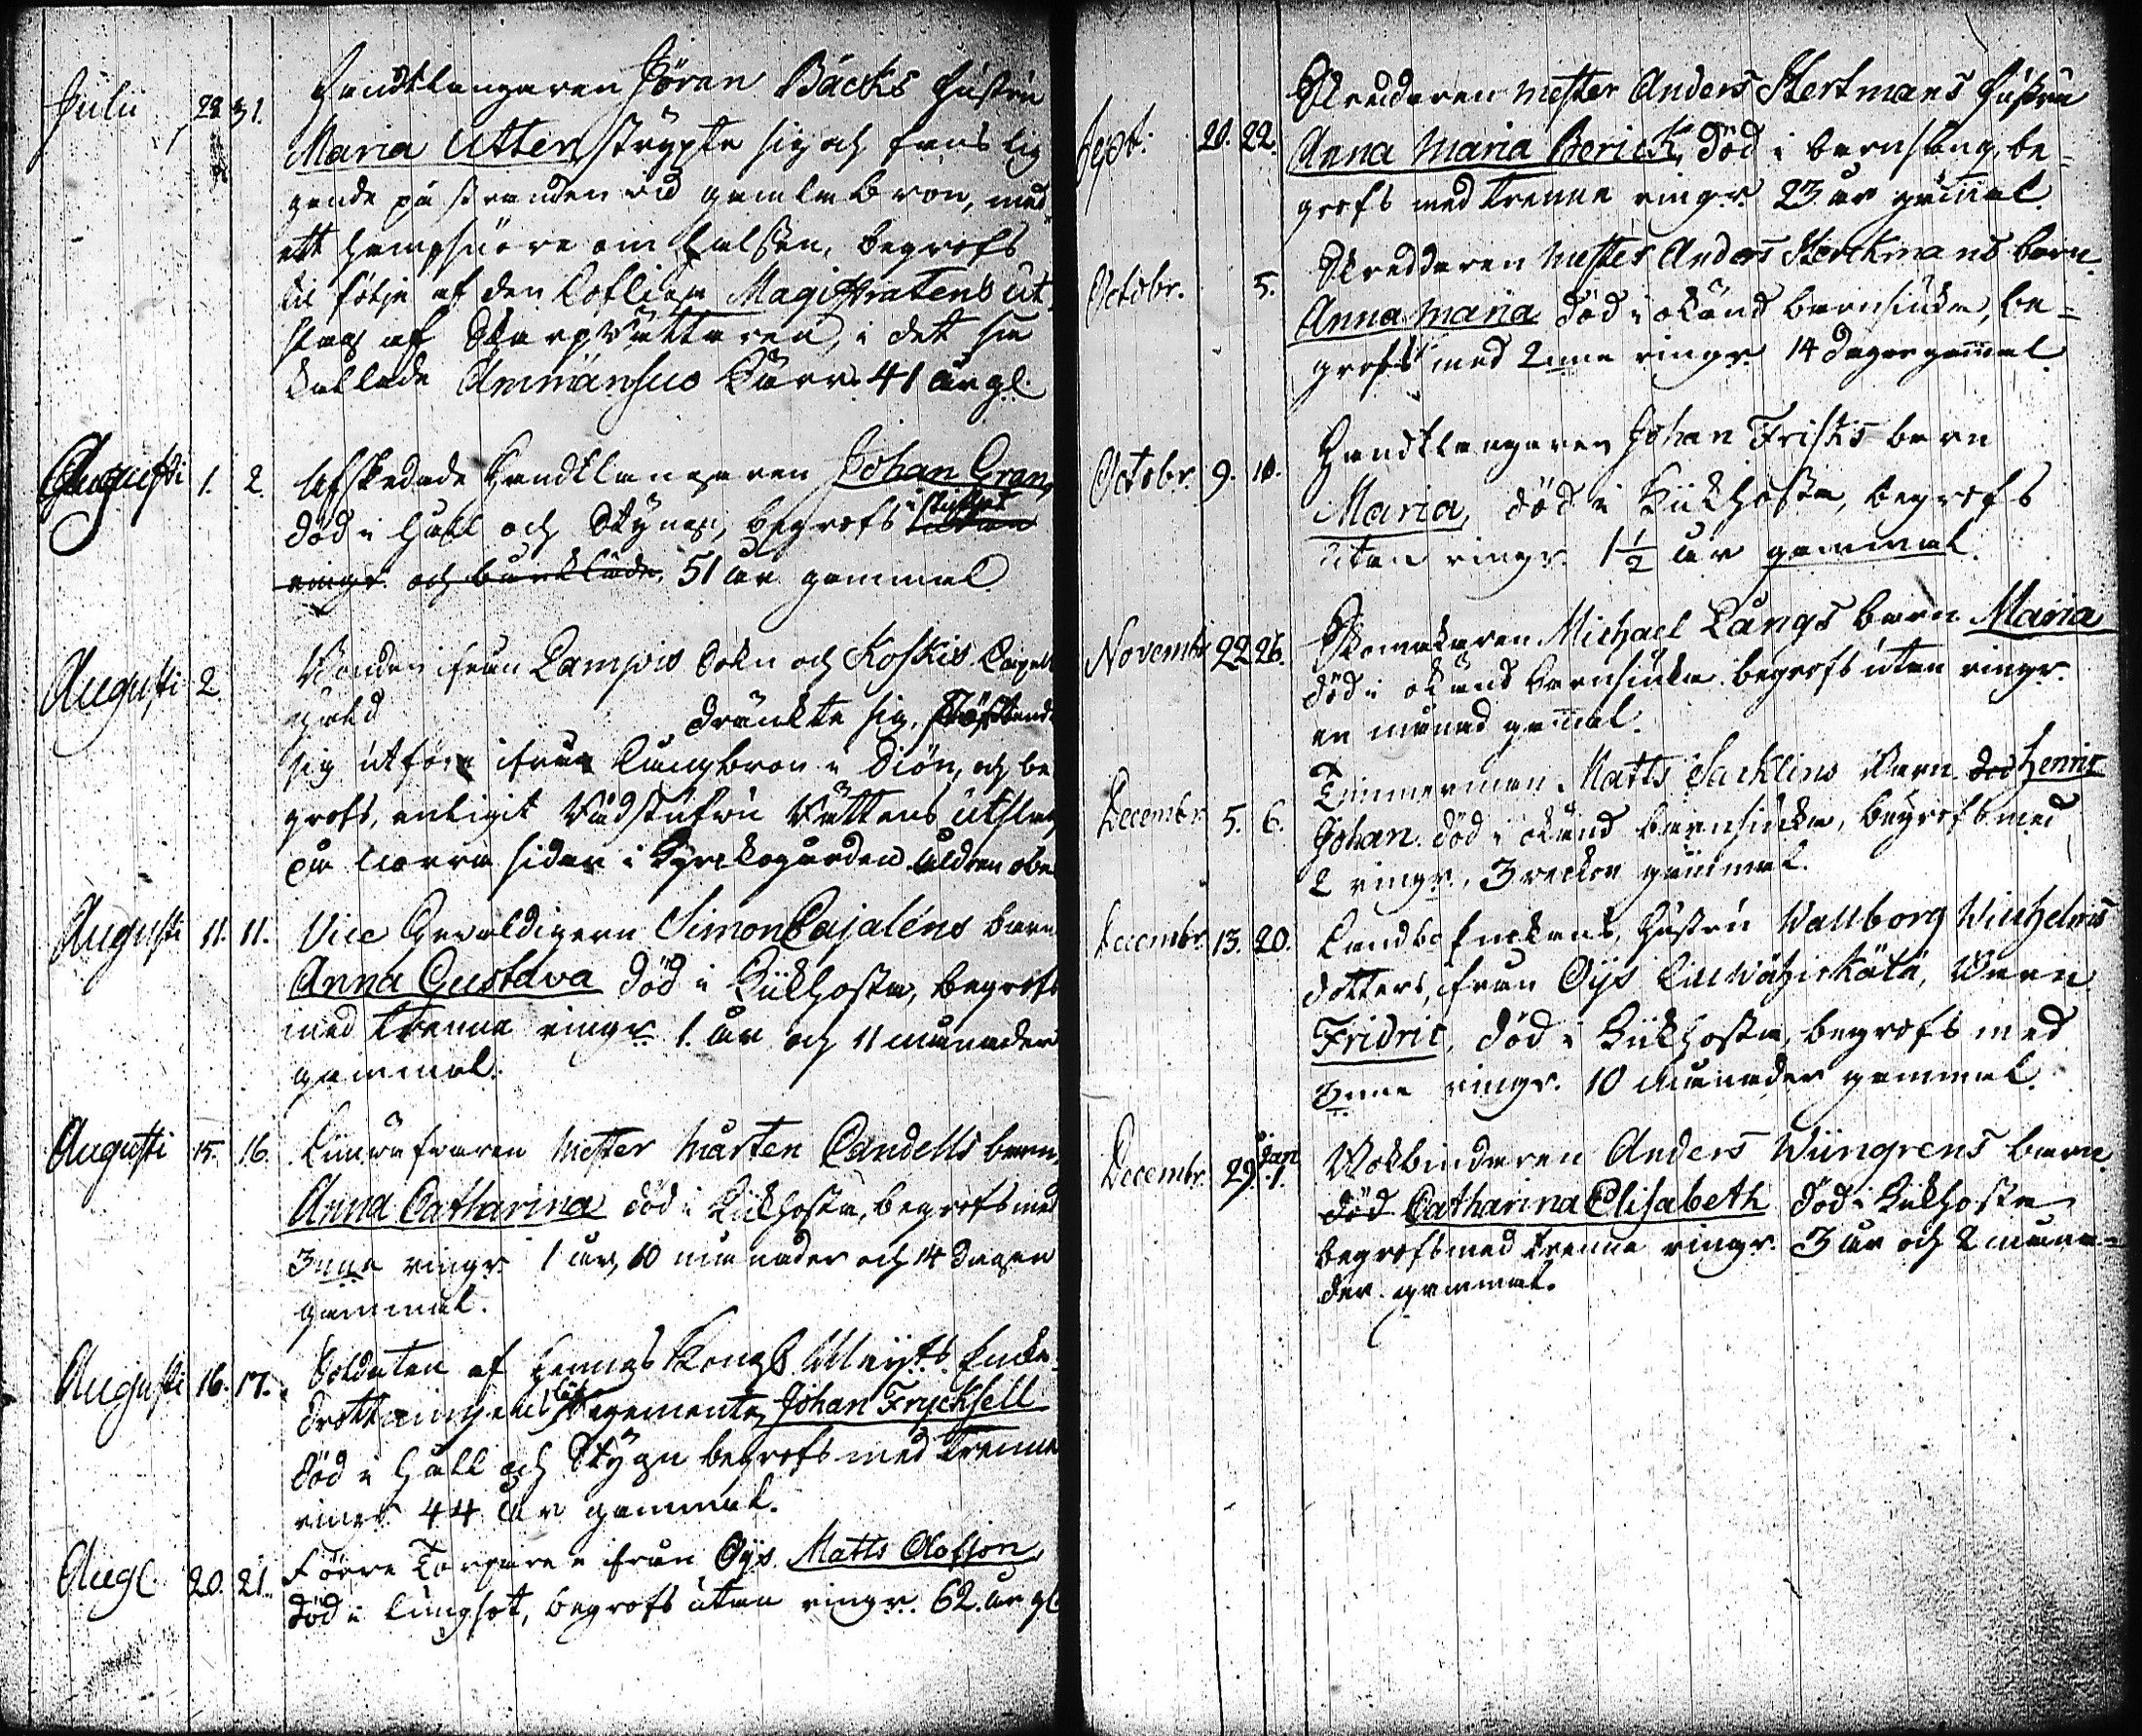 Julii 28 31. Handtlangaren Jöran Bäcks hustru
Maria Utter, strypte sig och fans lig
gande på stranden vid gamla bron, med
ett hampsnöre om halsen, begrofs
til följe af den Loflige Magistratens ut-
slag af Skarprättaren, i det så
kallade Ammänsuo kärr. 41 år gl.
Augusti 1. 2. Afskedade Handtlangaren Johan Gran,
död i Håll och Styng, begrofs i stillhet utan
ringn. och bårkläde, 51 år gammal
Augusti 2 Bonden ifrån Lampis Sokn och Koskis Capell
gäld dränkte sig, störtande
sig utföre ifrån Långbron i Siön, och be
grofs, enligit Rådstufvu Rättens utslag
på norra sidan i Kyrckogården åldren obe
Augusti 11. 11. Vice Gevaldigern Simon Cajaléns barn
Anna Gustava död i Kikhosta, begrofs
med trenne ringr. 1. år och 11 månader
gammal.
Augusti 15. 16. Linväfvaren Mester Mårten Candells barn,
Anna Catharina död i Kikhosta, begrofs med
3nne ringr. 1 år, 10 månader och 14 dagar
gammal.
Augusti 16. 17. Soldaten af Hennes Kongl. Maijts. Enke-
drottningens Regemente, Johan Frycksell
död i Håll och Styng begrofs med trenne
ringr. 44 år gammal.
Augl. 20. 21. Förre Torparen ifrån Öijs Matts Olofson,
död i lungsot, begrofs utan ringn. 62. år gl.
Sept. 20. 22. Skreddaren mester Anders Stertmans hustru
Anna Maria Berick, död i barnsäng, be=
grofs med trenne ringr. 23 år gammal.
Octobr. 5. Skreddaren mester Anders Sterckmans barn
Anna Maria död i okänd barnsiuka, be=
grofs med 2nne ringr. 14 dagar gammal.
Octobr. 9. 10. Handtlangaren Johan Frisks barn
Maria, död i Kikhosta, begrofs
utan ringr. 1 1/2 år gammal.
Novembr 22 26. Skomakaren Michael Långs barn Maria
död i okänd barnsiuka begrofs utan ringr.
en månad gammal.
Decembr 5. 6. Timmerman Matts Sacklins Barn död Henric
Johan. död i okänd barnsiuka, begrofs med
2 ringr., 3 veckor gammal.
Decembr. 13. 20. Landbo Enckans, Hustru Wallborg Wilhelms
dotters, ifrån Öijs Lillwäheikölä, Barn
Fridric, död i Kikhosta, begrofs med
3nne ringr. 10 Månader gammal.
Decembr. 29. Jan 1. Bokbinderen Anders Wiingrens barn
död Catharina Elisabeth död i Kikhosta
begrofs med trenne ringr. 3 år och 2 måna=
der gammal.